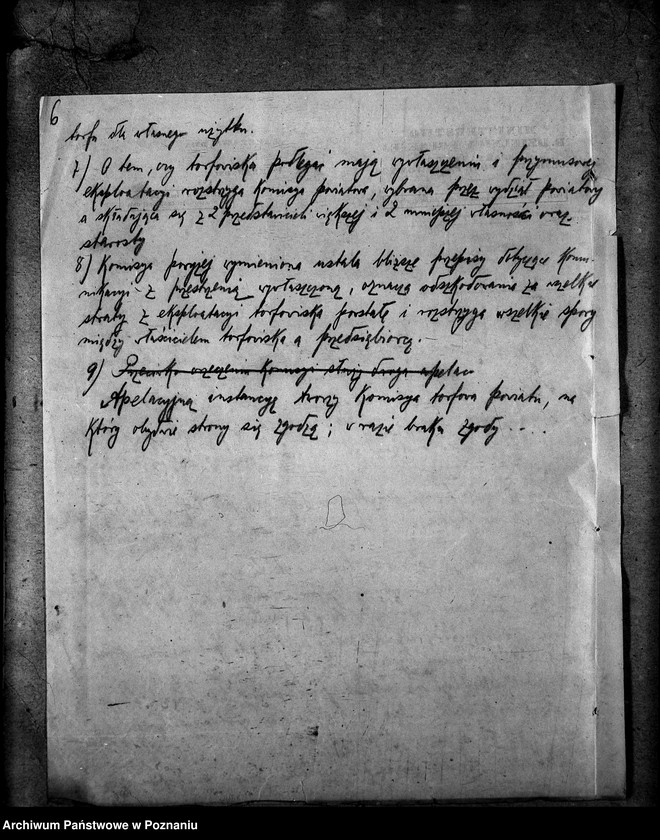 6
torfu dla własnego użytku.
7) O tem, czy torfowiska podlegać mają wywłaszczeniu i przymusowej
eksploatacyi rozstrzyga Komisya powiatowa, wybrana przez wydział powiatowy
a składająca się z 2 przedstawicieli większej i 2 mniejszej własności oraz
starosty
8) Komisya powyżej wymieniona ustala bliższe przepisy dotyczące Komu-
nikacyi z przestrzenią wywłaszczoną, oznacza odszkodowanie za wszelkie
straty z eksploatacyi torfowiska powstałe i rozstrzyga wszelkie spory
między właścicielem torfowiska a przedsiębiorcą.-
9) Przeciwko orzeczeniu Komisyi stoi droga apelac
Apelacyjną instancyę tworzy Komisya torfowa powiatu, na
który obydwie strony się zgodzą; w razie braku zgody ....
Archiwum Państwowe w Poznaniu